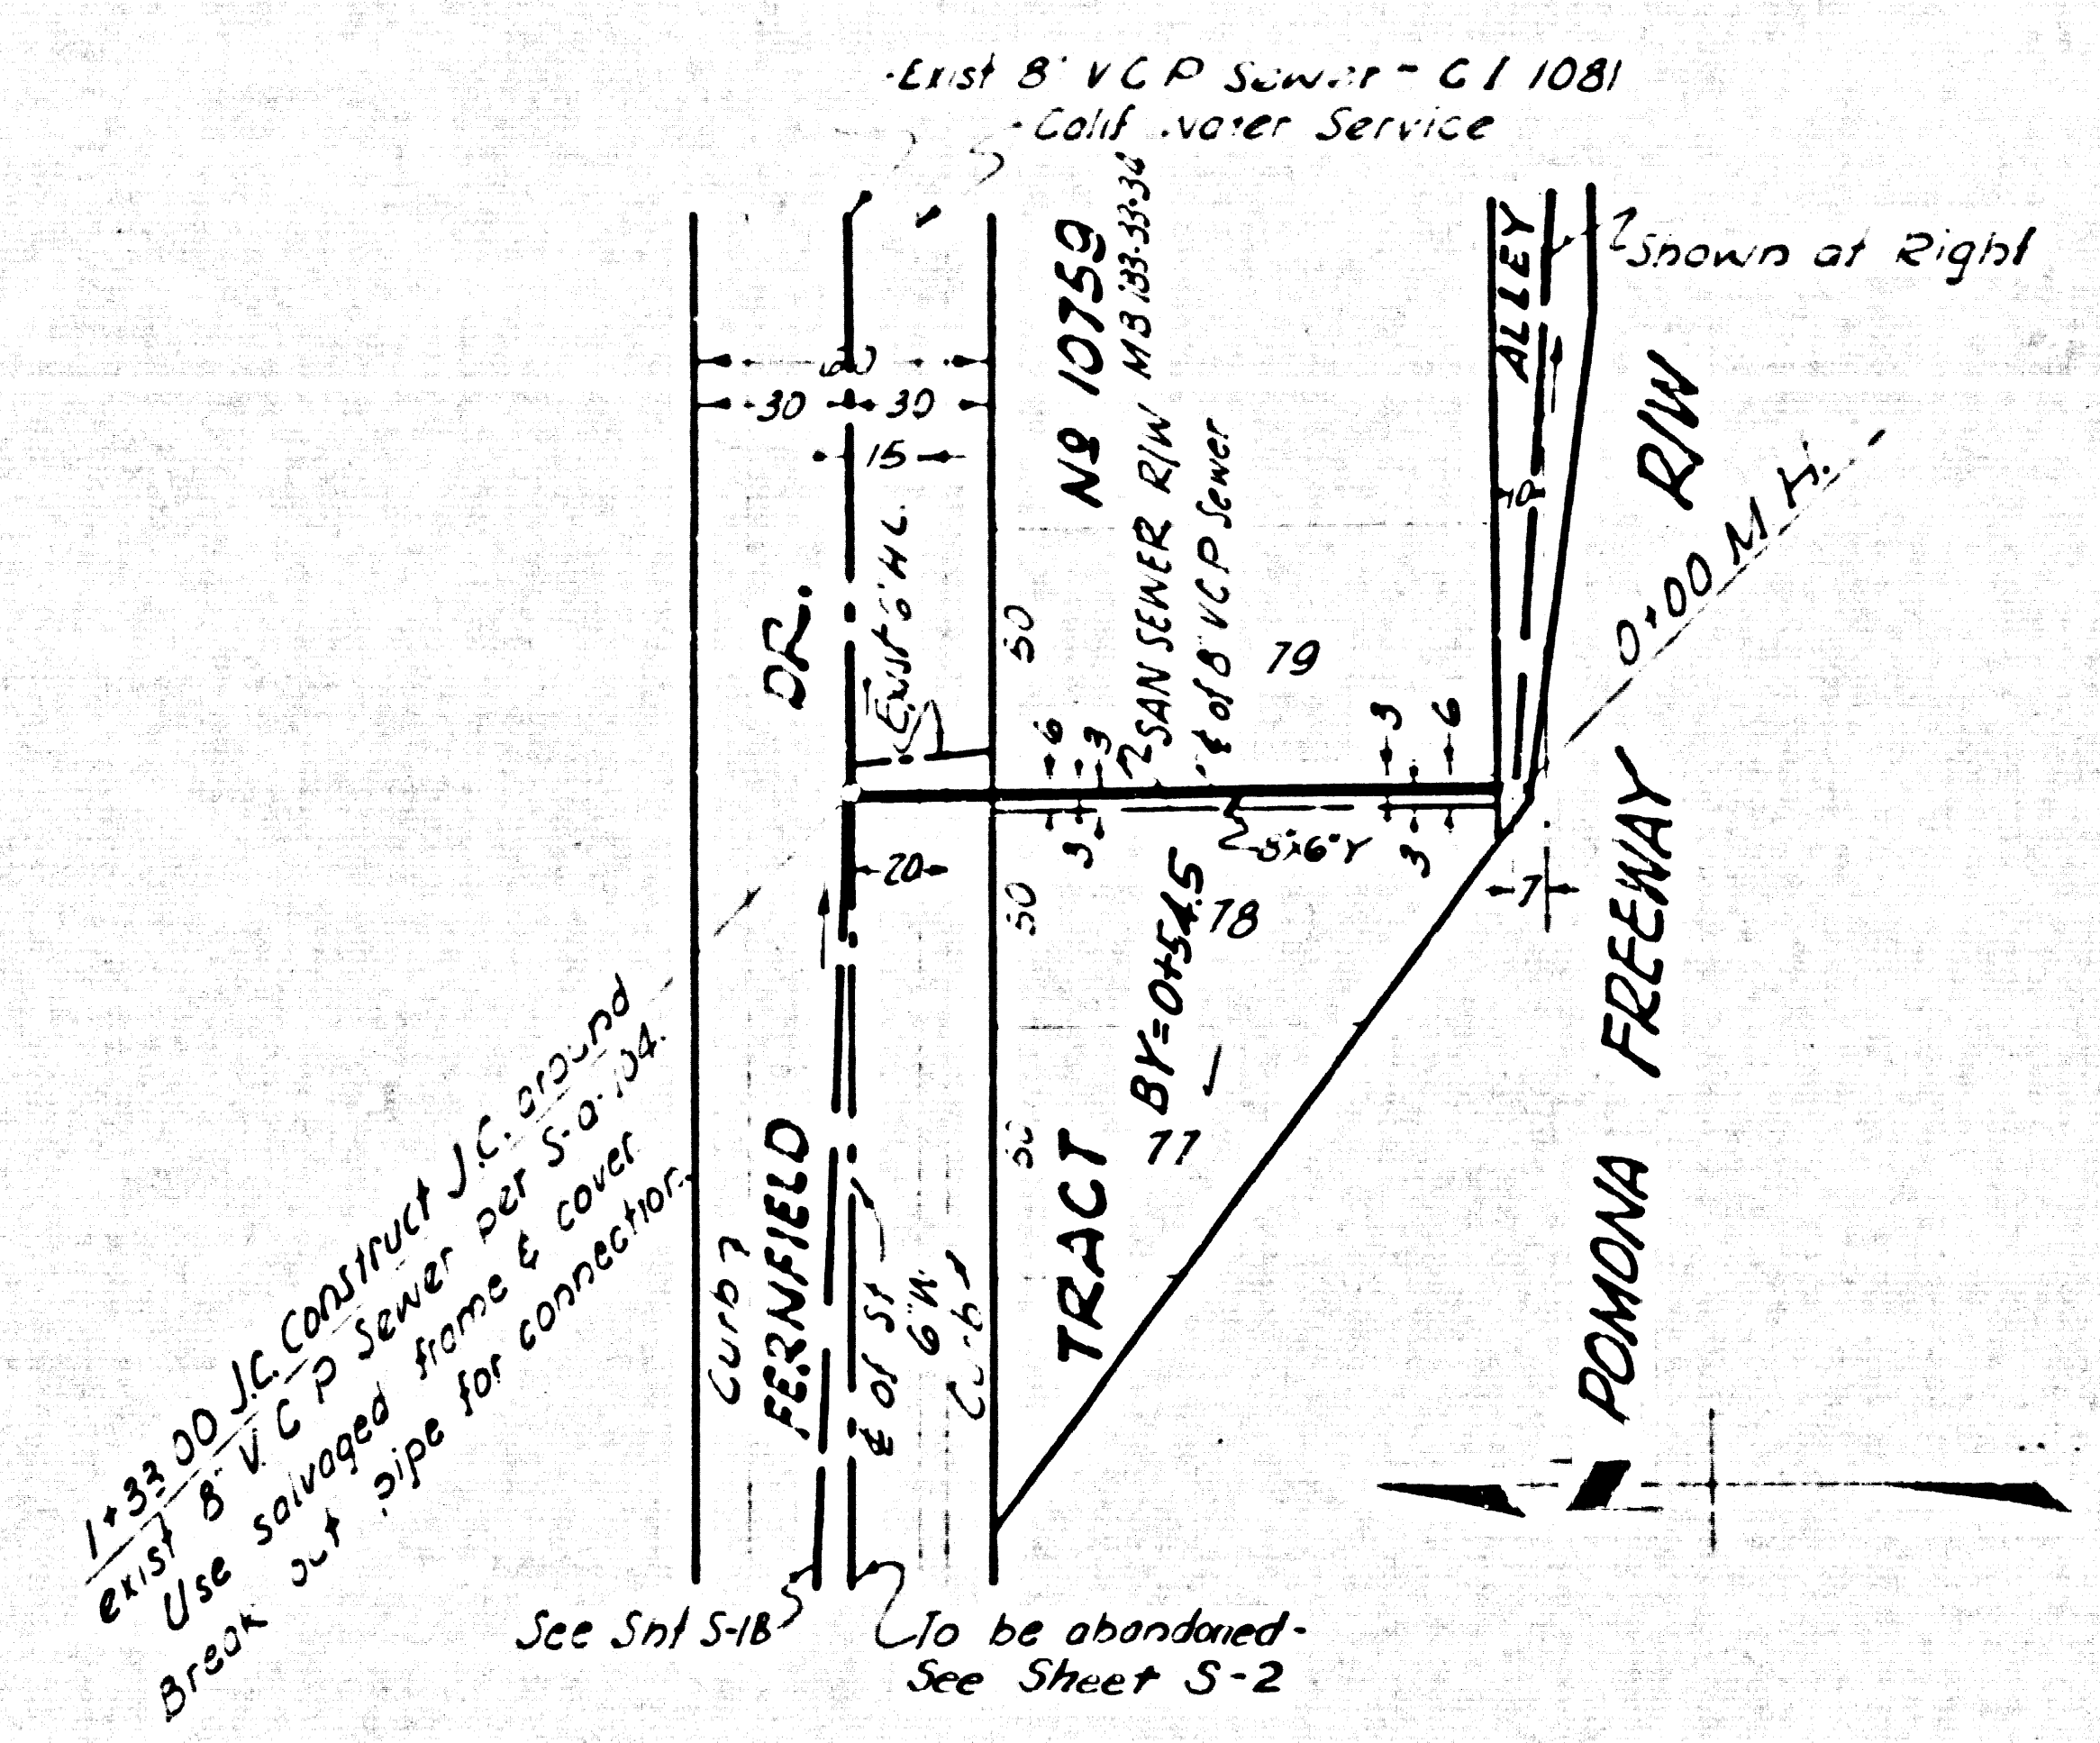 Exist 8" V C P Sewer - C I 1081
Calif Water Service
Shown at Right
ALLEY
No 10759
M B 133-33-34
60
30 30
15
10
R/W
SAN SEWER R/W
℄ of 8" V C P Sewer
Exist 6" H C.
DR.
50
79
0+00 M.H.
6
3
3
6
3
3
8"x6" Y
20
50
78
7
BY=0+54.5
FREEWAY
77
50
TRACT
FERNFIELD
Curb
℄ of St
6" W.
Curb
POMONA
1+33.00 J.C. Construct J.C. around
exist 8" V C P Sewer per S-a-104.
Use salvaged frame & cover
Break out pipe for connection.
See Sht S-1B
To be abandoned-
See Sheet S-2